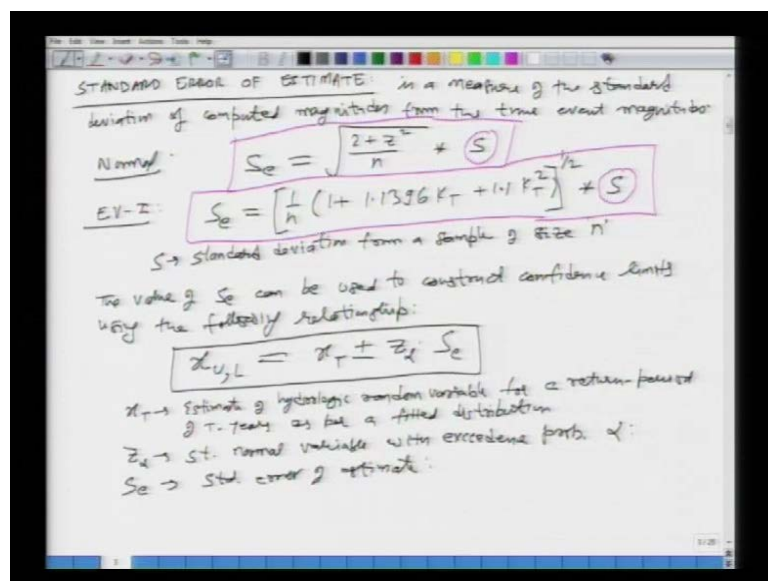 File Edit View Insert Actions Tools Help
STANDARD ERROR OF ESTIMATE: is a measure of the standard
deviation of computed magnitudes from the true event magnitudes.
Normal: Se = √((2 + z²)/n) * S
EV-I: Se = [1/n (1 + 1.1396 K_T + 1.1 K_T²)]^1/2 * S
S → Standard deviation from a sample of size 'n'
The value of Se can be used to construct confidence limits
using the following relationship:
x_U,L = x_T ± z_α Se
x_T → Estimate of hydrologic random variable for a return-period
of T-years as per a fitted distribution
z_α → St. normal variable with exceedence prob. α:
Se → Std. error of estimate: